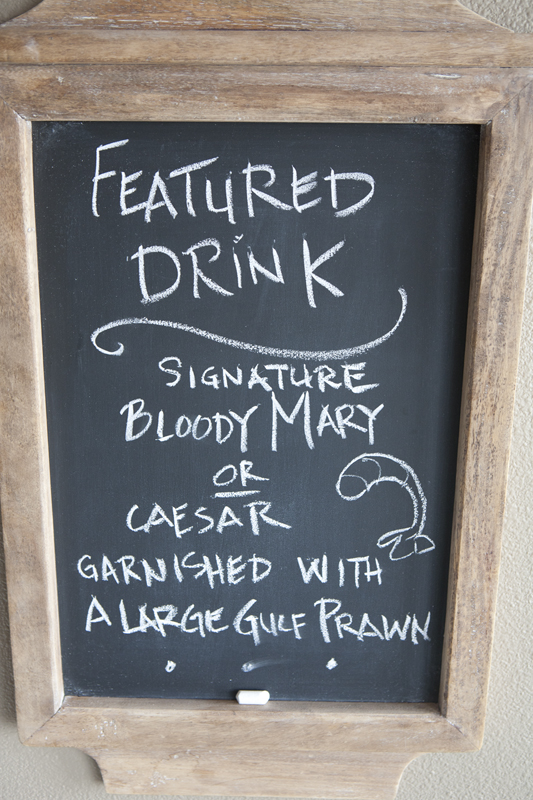 FEATURED
DRiNK
SIGNATURE
BLOODY MARY
OR
CAESAR
GARNISHED WITH
A LARGE GULF PRAWN